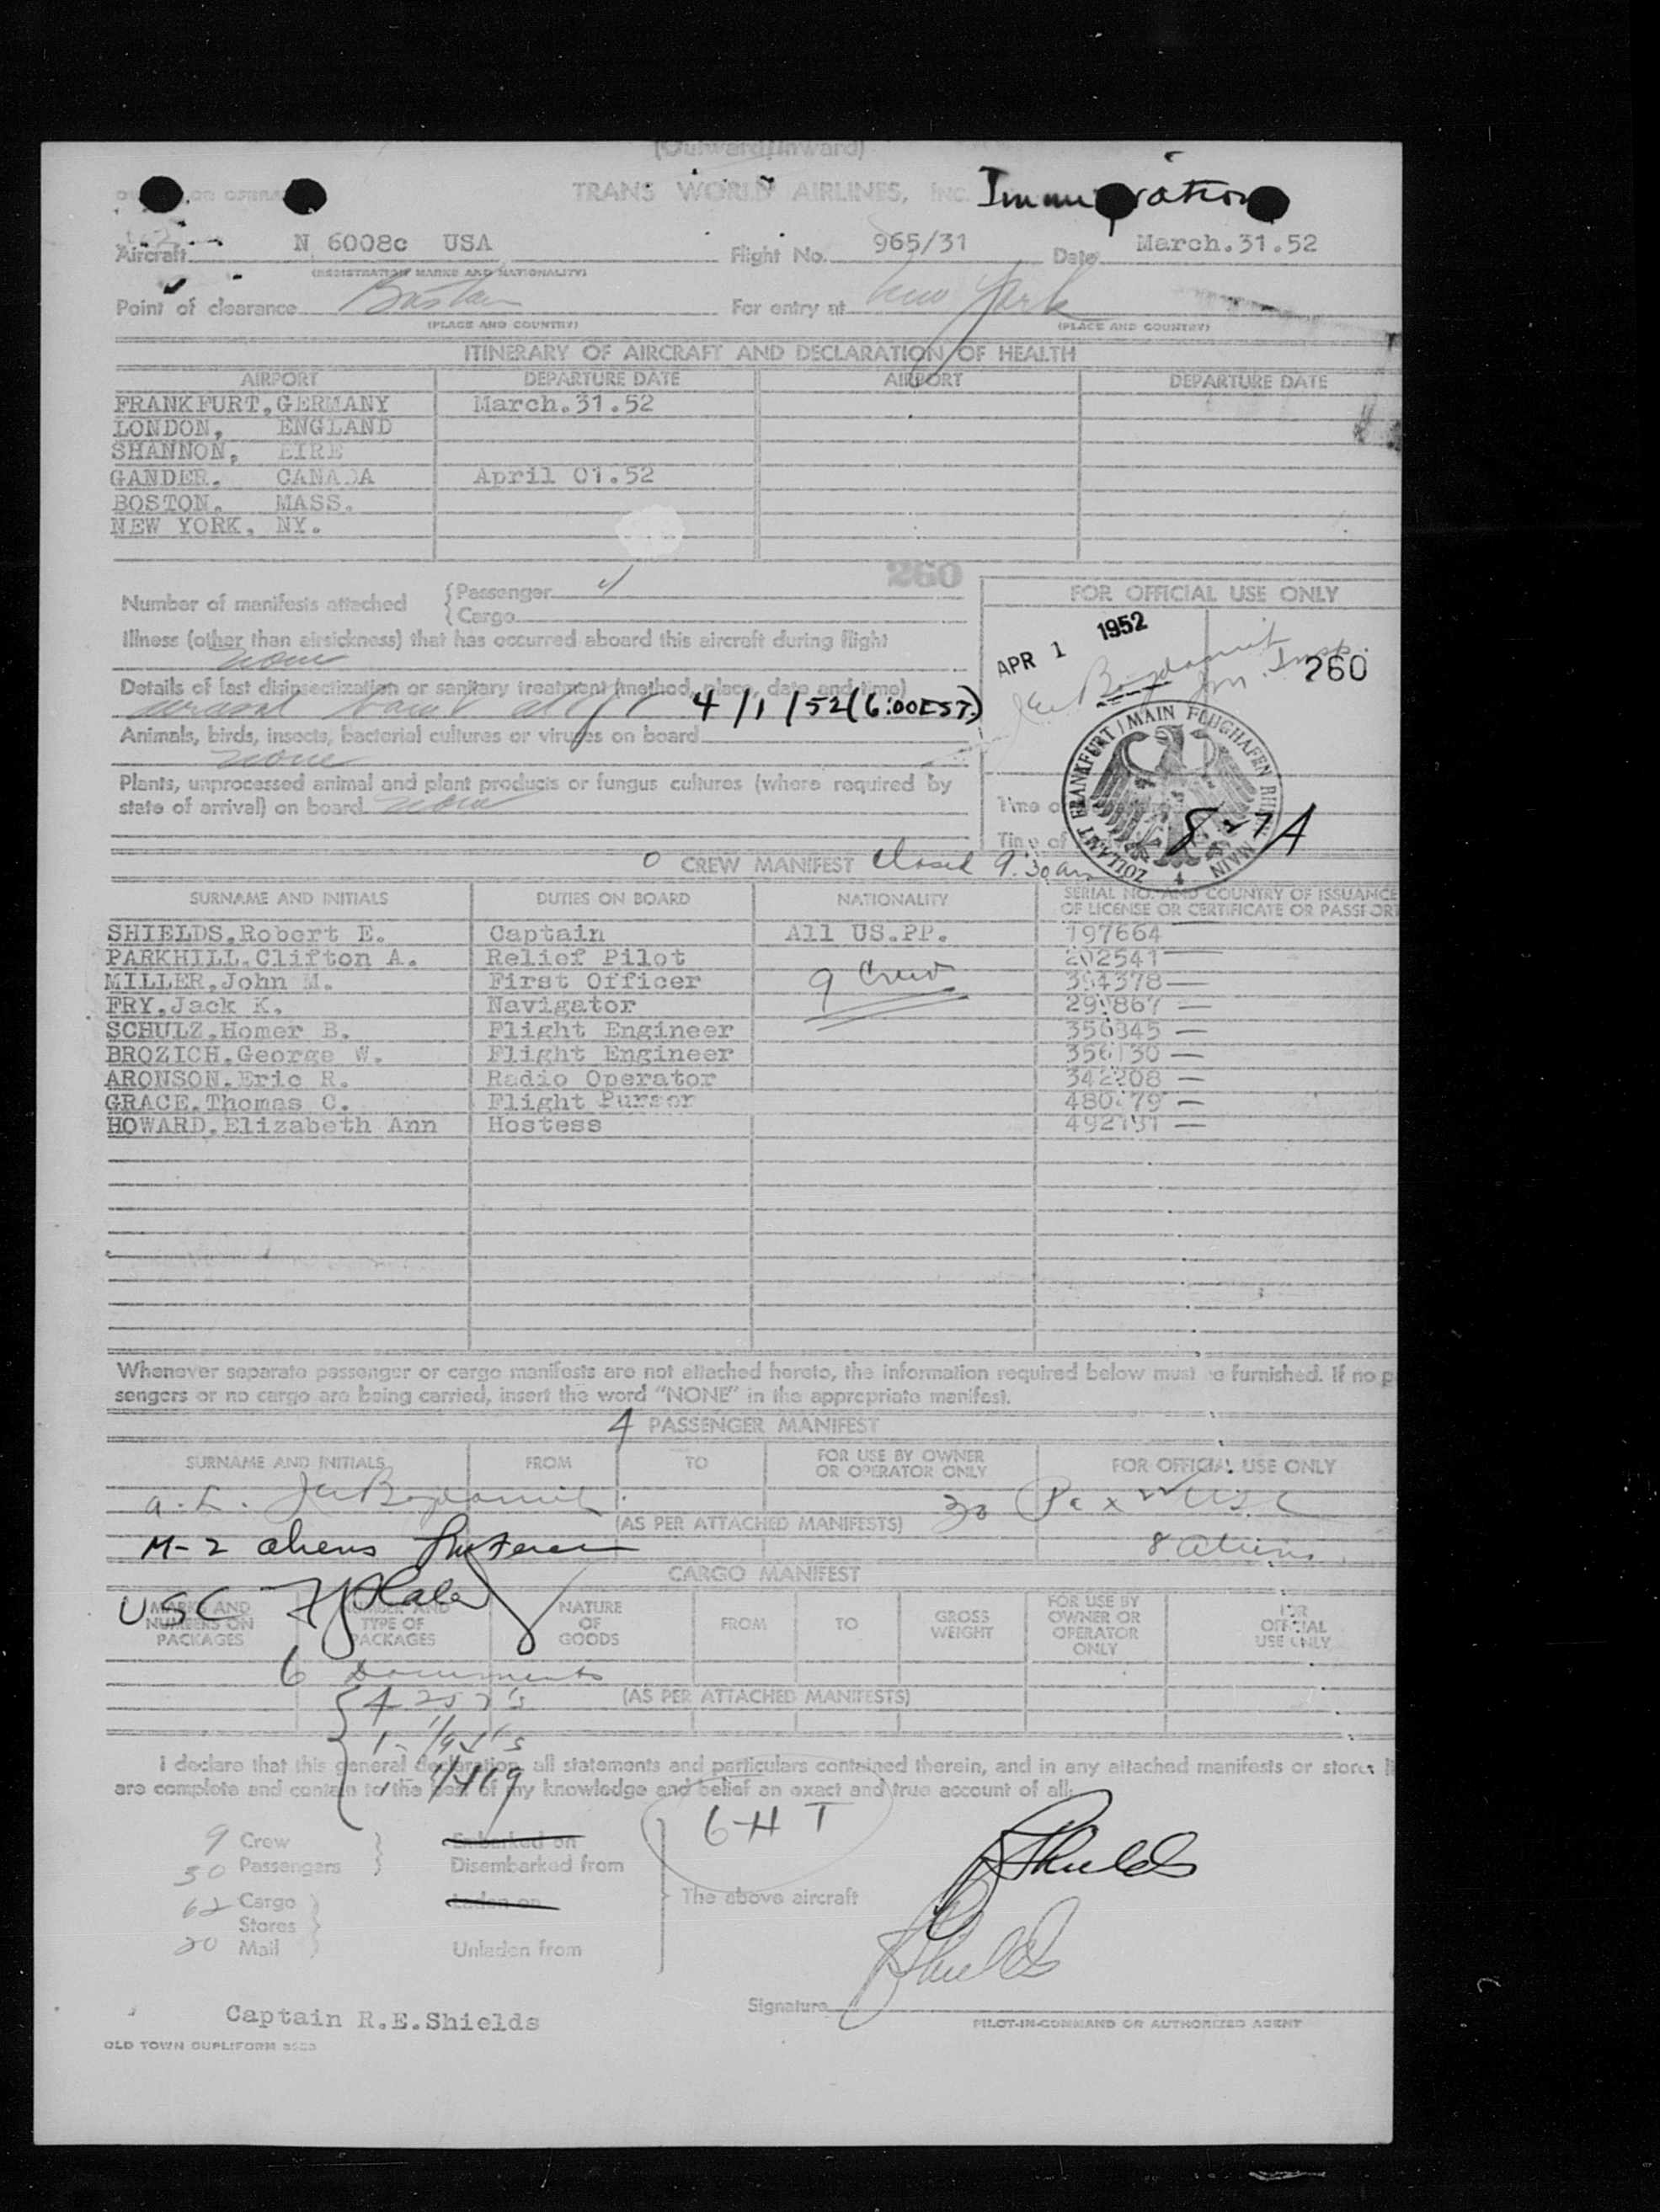 (Outward/Inward)
TRANS WORLD AIRLINES, INC. Immigration
Aircraft N 6008c USA Flight No. 965/31 Date March.31.52
(REGISTRATION MARKS AND NATIONALITY)
Point of clearance Boston For entry at New York
(PLACE AND COUNTRY) (PLACE AND COUNTRY)
ITINERARY OF AIRCRAFT AND DECLARATION OF HEALTH
AIRPORT DEPARTURE DATE AIRPORT DEPARTURE DATE
FRANKFURT,GERMANY March.31.52
LONDON, ENGLAND
SHANNON, EIRE
GANDER. CANADA April 01.52
BOSTON, MASS.
NEW YORK, NY.
260
Number of manifests attached {Passenger 4
{Cargo
FOR OFFICIAL USE ONLY
Illness (other than airsickness) that has occurred aboard this aircraft during flight
none
APR 1 1952
260
Details of last disinsectization or sanitary treatment (method, place, date and time)
4/1/52(6:00EST)
Animals, birds, insects, bacterial cultures or viruses on board
none
Plants, unprocessed animal and plant products or fungus cultures (where required by
state of arrival) on board none
Time of
Time of
ZOLLAMT FRANKFURT/MAIN FLUGHAFEN RHEIN MAIN
8-7A
0 CREW MANIFEST closed 9:30 am
SURNAME AND INITIALS DUTIES ON BOARD NATIONALITY SERIAL NO. AND COUNTRY OF ISSUANCE
OF LICENSE OR CERTIFICATE OR PASSPORT
SHIELDS,Robert E. Captain All US.PP. 197664
PARKHILL,Clifton A. Relief Pilot 202541
MILLER,John M. First Officer 9 Crew 394378
FRY,Jack K. Navigator
SCHULZ,Homer B. Flight Engineer
BROZICH,George W. Flight Engineer
ARONSON,Eric R. Radio Operator 342208
GRACE,Thomas C. Flight Purser
HOWARD,Elizabeth Ann Hostess
Whenever separate passenger or cargo manifests are not attached hereto, the information required below must be furnished. If no p
sengers or no cargo are being carried, insert the word "NONE" in the appropriate manifest.
4 PASSENGER MANIFEST
SURNAME AND INITIALS FROM TO FOR USE BY OWNER
OR OPERATOR ONLY FOR OFFICIAL USE ONLY
30 Pax USC
(AS PER ATTACHED MANIFESTS)
M-2 aliens 8 aliens
CARGO MANIFEST
USC
MARKS AND
NUMBERS ON
PACKAGES
NUMBER AND
TYPE OF
PACKAGES
NATURE
OF
GOODS
FROM TO GROSS
WEIGHT
FOR USE BY
OWNER OR
OPERATOR
ONLY
FOR
OFFICIAL
USE ONLY
6 Documents
(AS PER ATTACHED MANIFESTS)
I declare that this general declaration, all statements and particulars contained therein, and in any attached manifests or stores
are complete and contain to the best of my knowledge and belief an exact and true account of all:
6-HT
9 Crew Embarked on
30 Passengers Disembarked from
62 Cargo Laden on The above aircraft
Stores
20 Mail Unladen from
RShields
RShields
Signature
PILOT-IN-COMMAND OR AUTHORIZED AGENT
Captain R.E.Shields
OLD TOWN DUPLIFORM